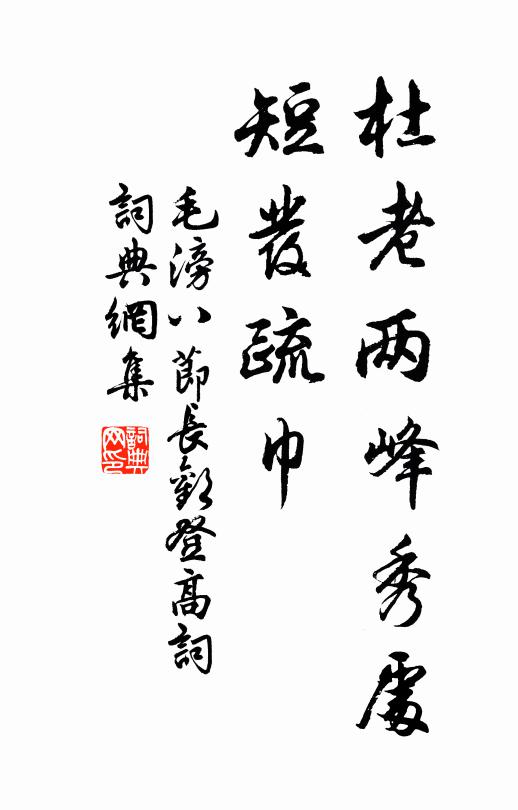 杜老两峰秀處
短發疏巾
毛滂八節長歡登高詞
詞典網集
詞典網印